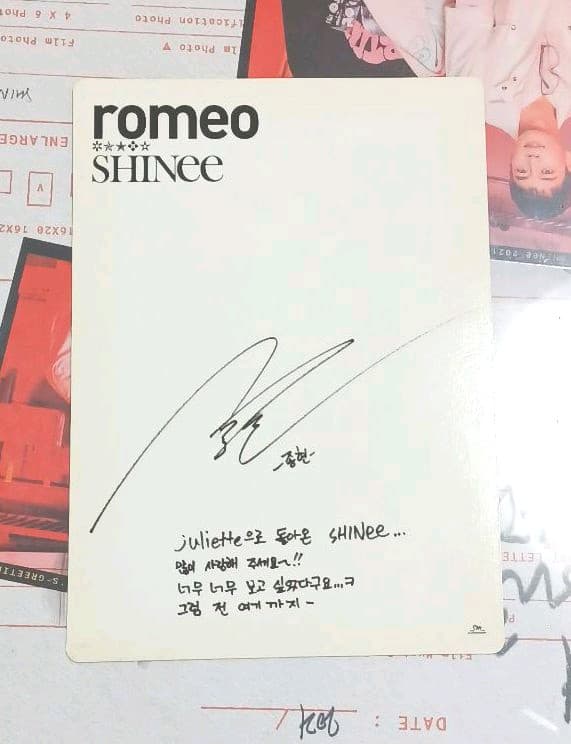 romeo
SHINee
종현
juliette으로 돌아온 SHINee...
많이 사랑해 주세요~!!
너무 너무 보고 싶었다구요...ㅋ
그럼 전 여기까지-
SM
4 X 6 Photo
Film Photo ▼
ENLARGE
V
16X20
DATE : /